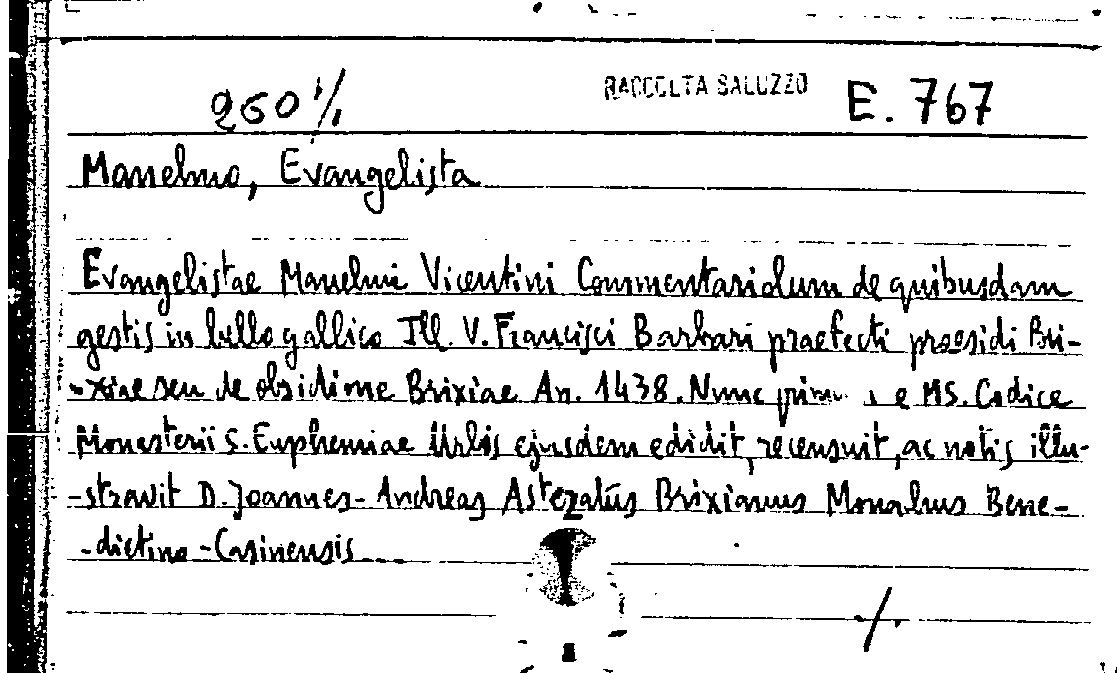 260 1/1 RACCOLTA SALUZZO E. 767
Manelmo, Evangelista
Evangelistae Manelmi Vicentini Commentariolum de quibusdam
gestis in bello gallico Ill. V. Francisci Barbari praefecti praesidi Bri-
-xiae seu de obsidione Brixiae An. 1438. Nunc e MS. Codice
Monasterii S. Euphemiae Urbis ejusdem edidit, recensuit, ac notis illu-
-stravit D. Joannes-Andreas Astezatus Brixianus Monachus Bene-
-dictino-Casinensis
./.